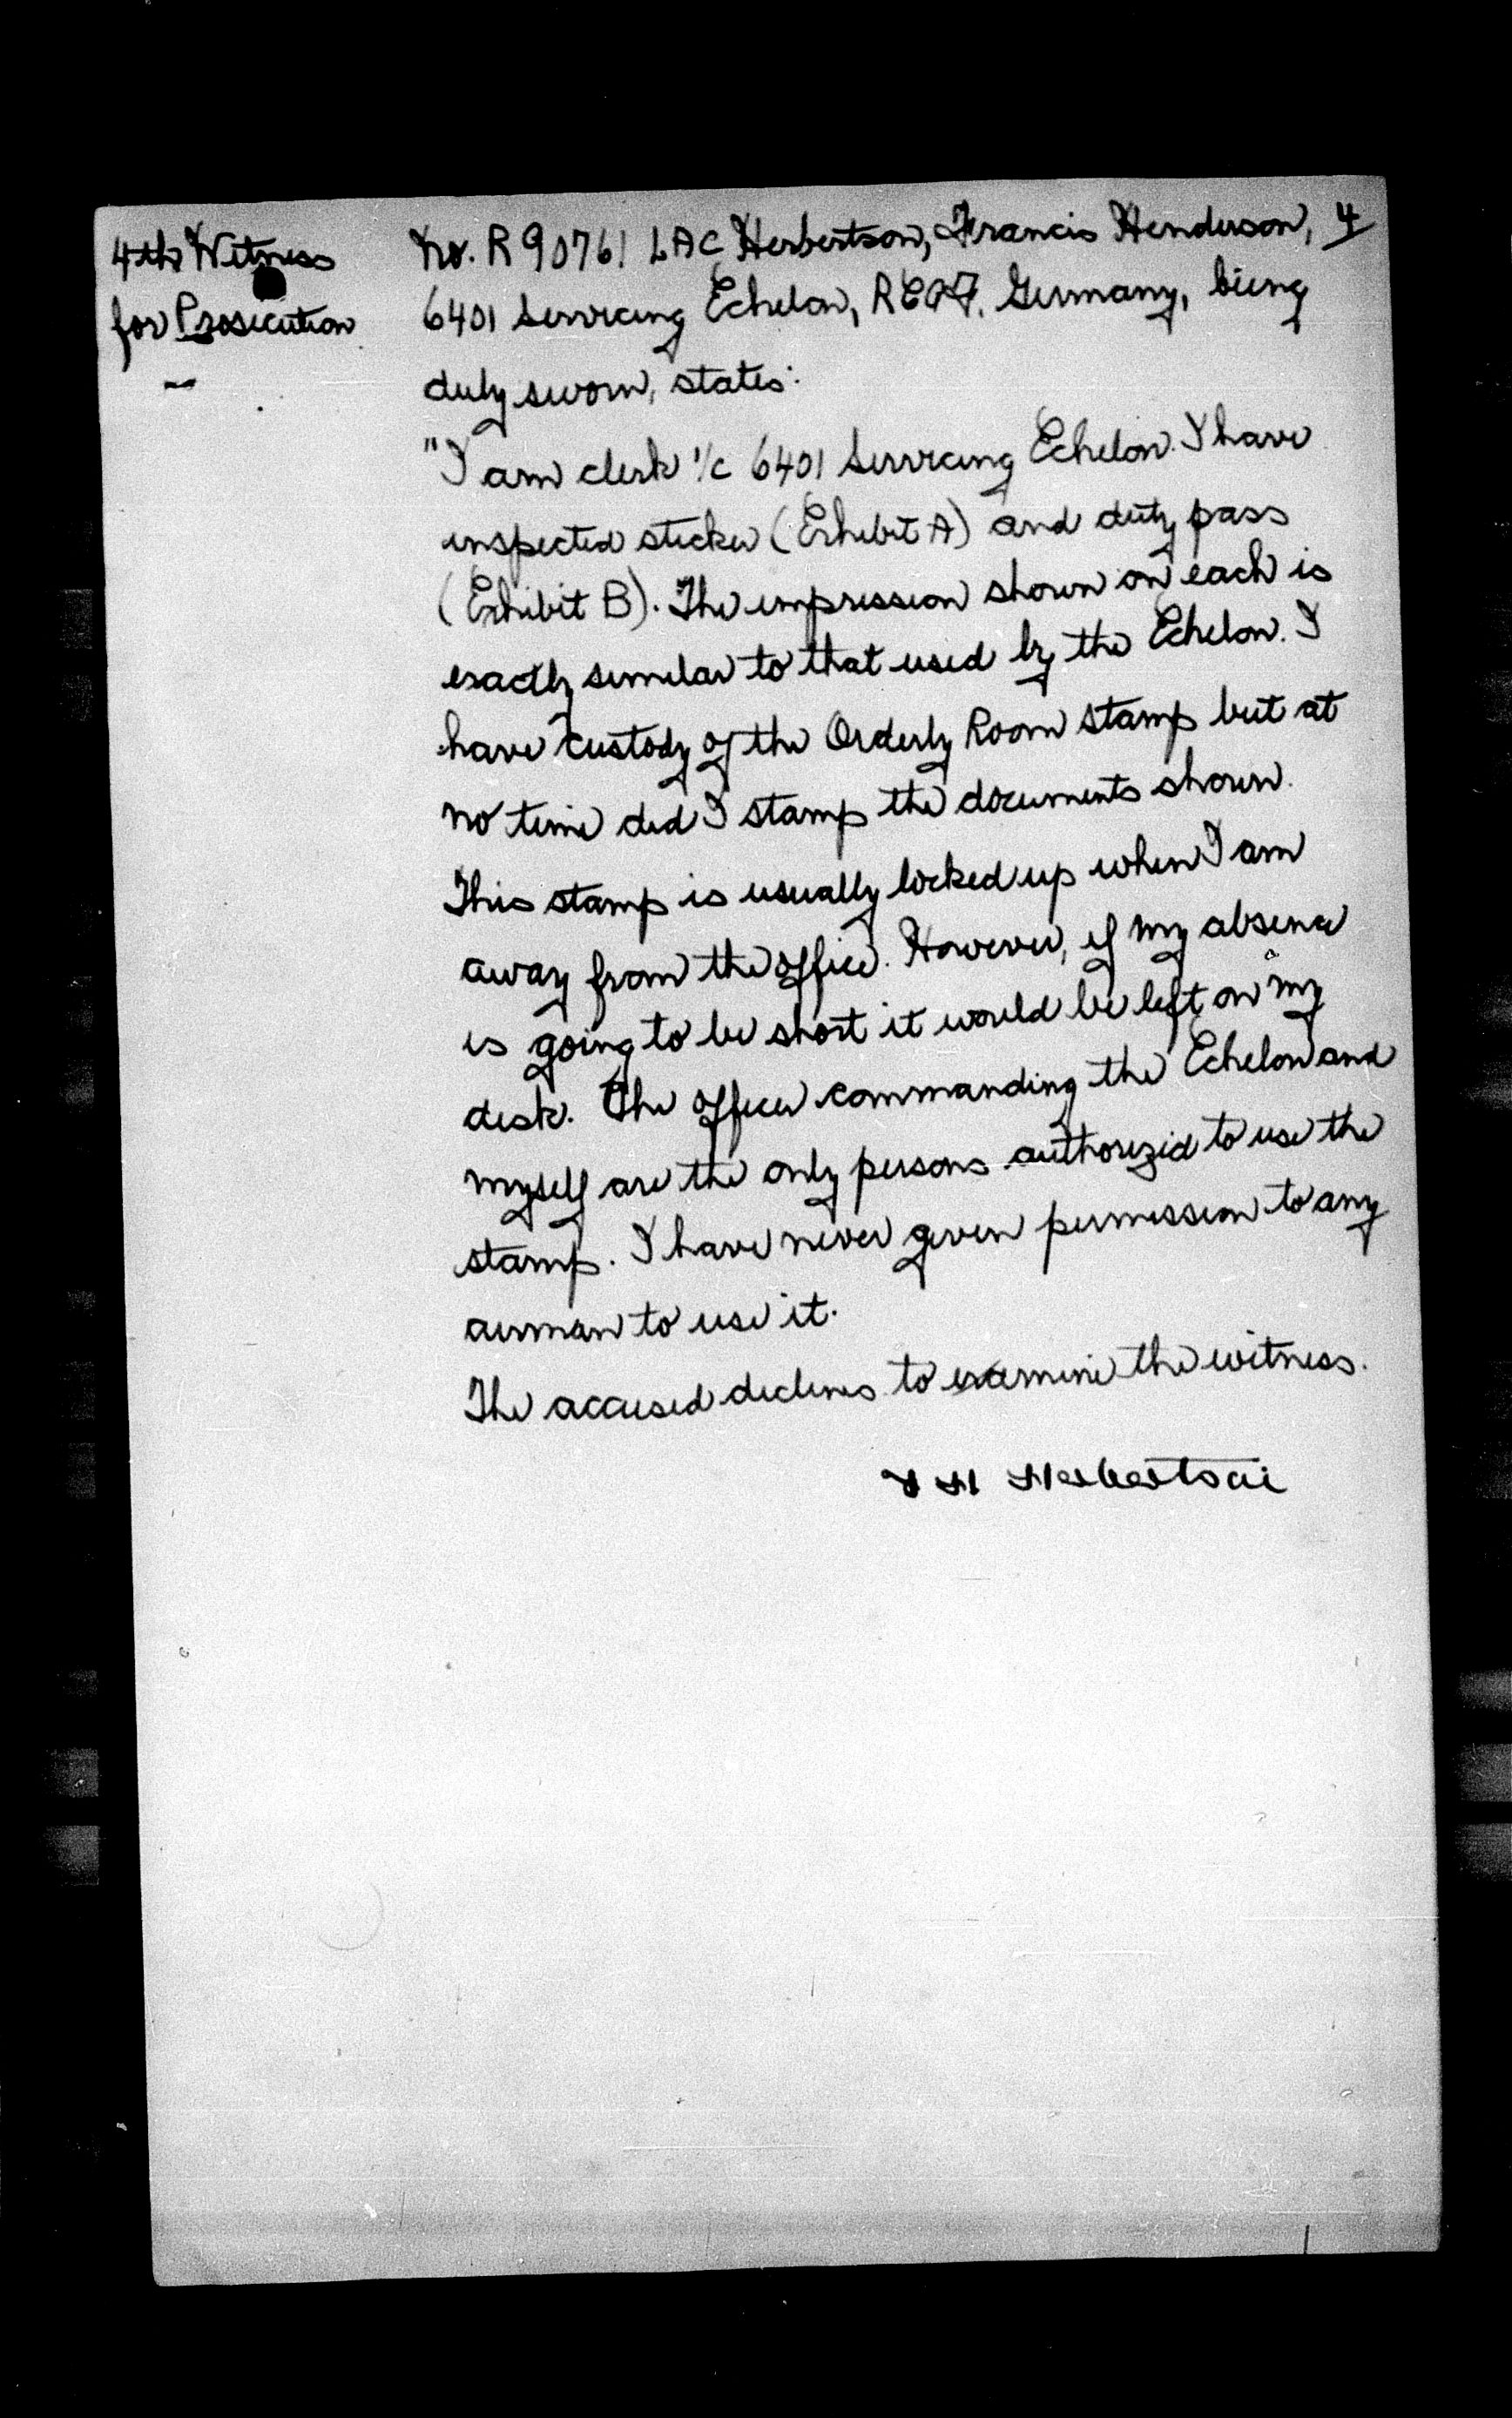 4th Witness
for Prosecution
No. R 90761 LAC Herbertson, Francis Henderson, 4
6401 Servicing Echelon, RCAF, Germany, being
duly sworn, states:
"I am clerk i/c 6401 Servicing Echelon. I have
inspected sticker (Exhibit A) and duty pass
(Exhibit B). The impression shown on each is
exactly similar to that used by the Echelon. I
have custody of the Orderly Room stamp but at
no time did I stamp the documents shown.
This stamp is usually locked up when I am
away from the office. However, if my absence
is going to be short it would be left on my
desk. The officer commanding the Echelon and
myself are the only persons authorized to use the
stamp. I have never given permission to any
airman to use it.
The accused declines to examine the witness.
F H Herbertson